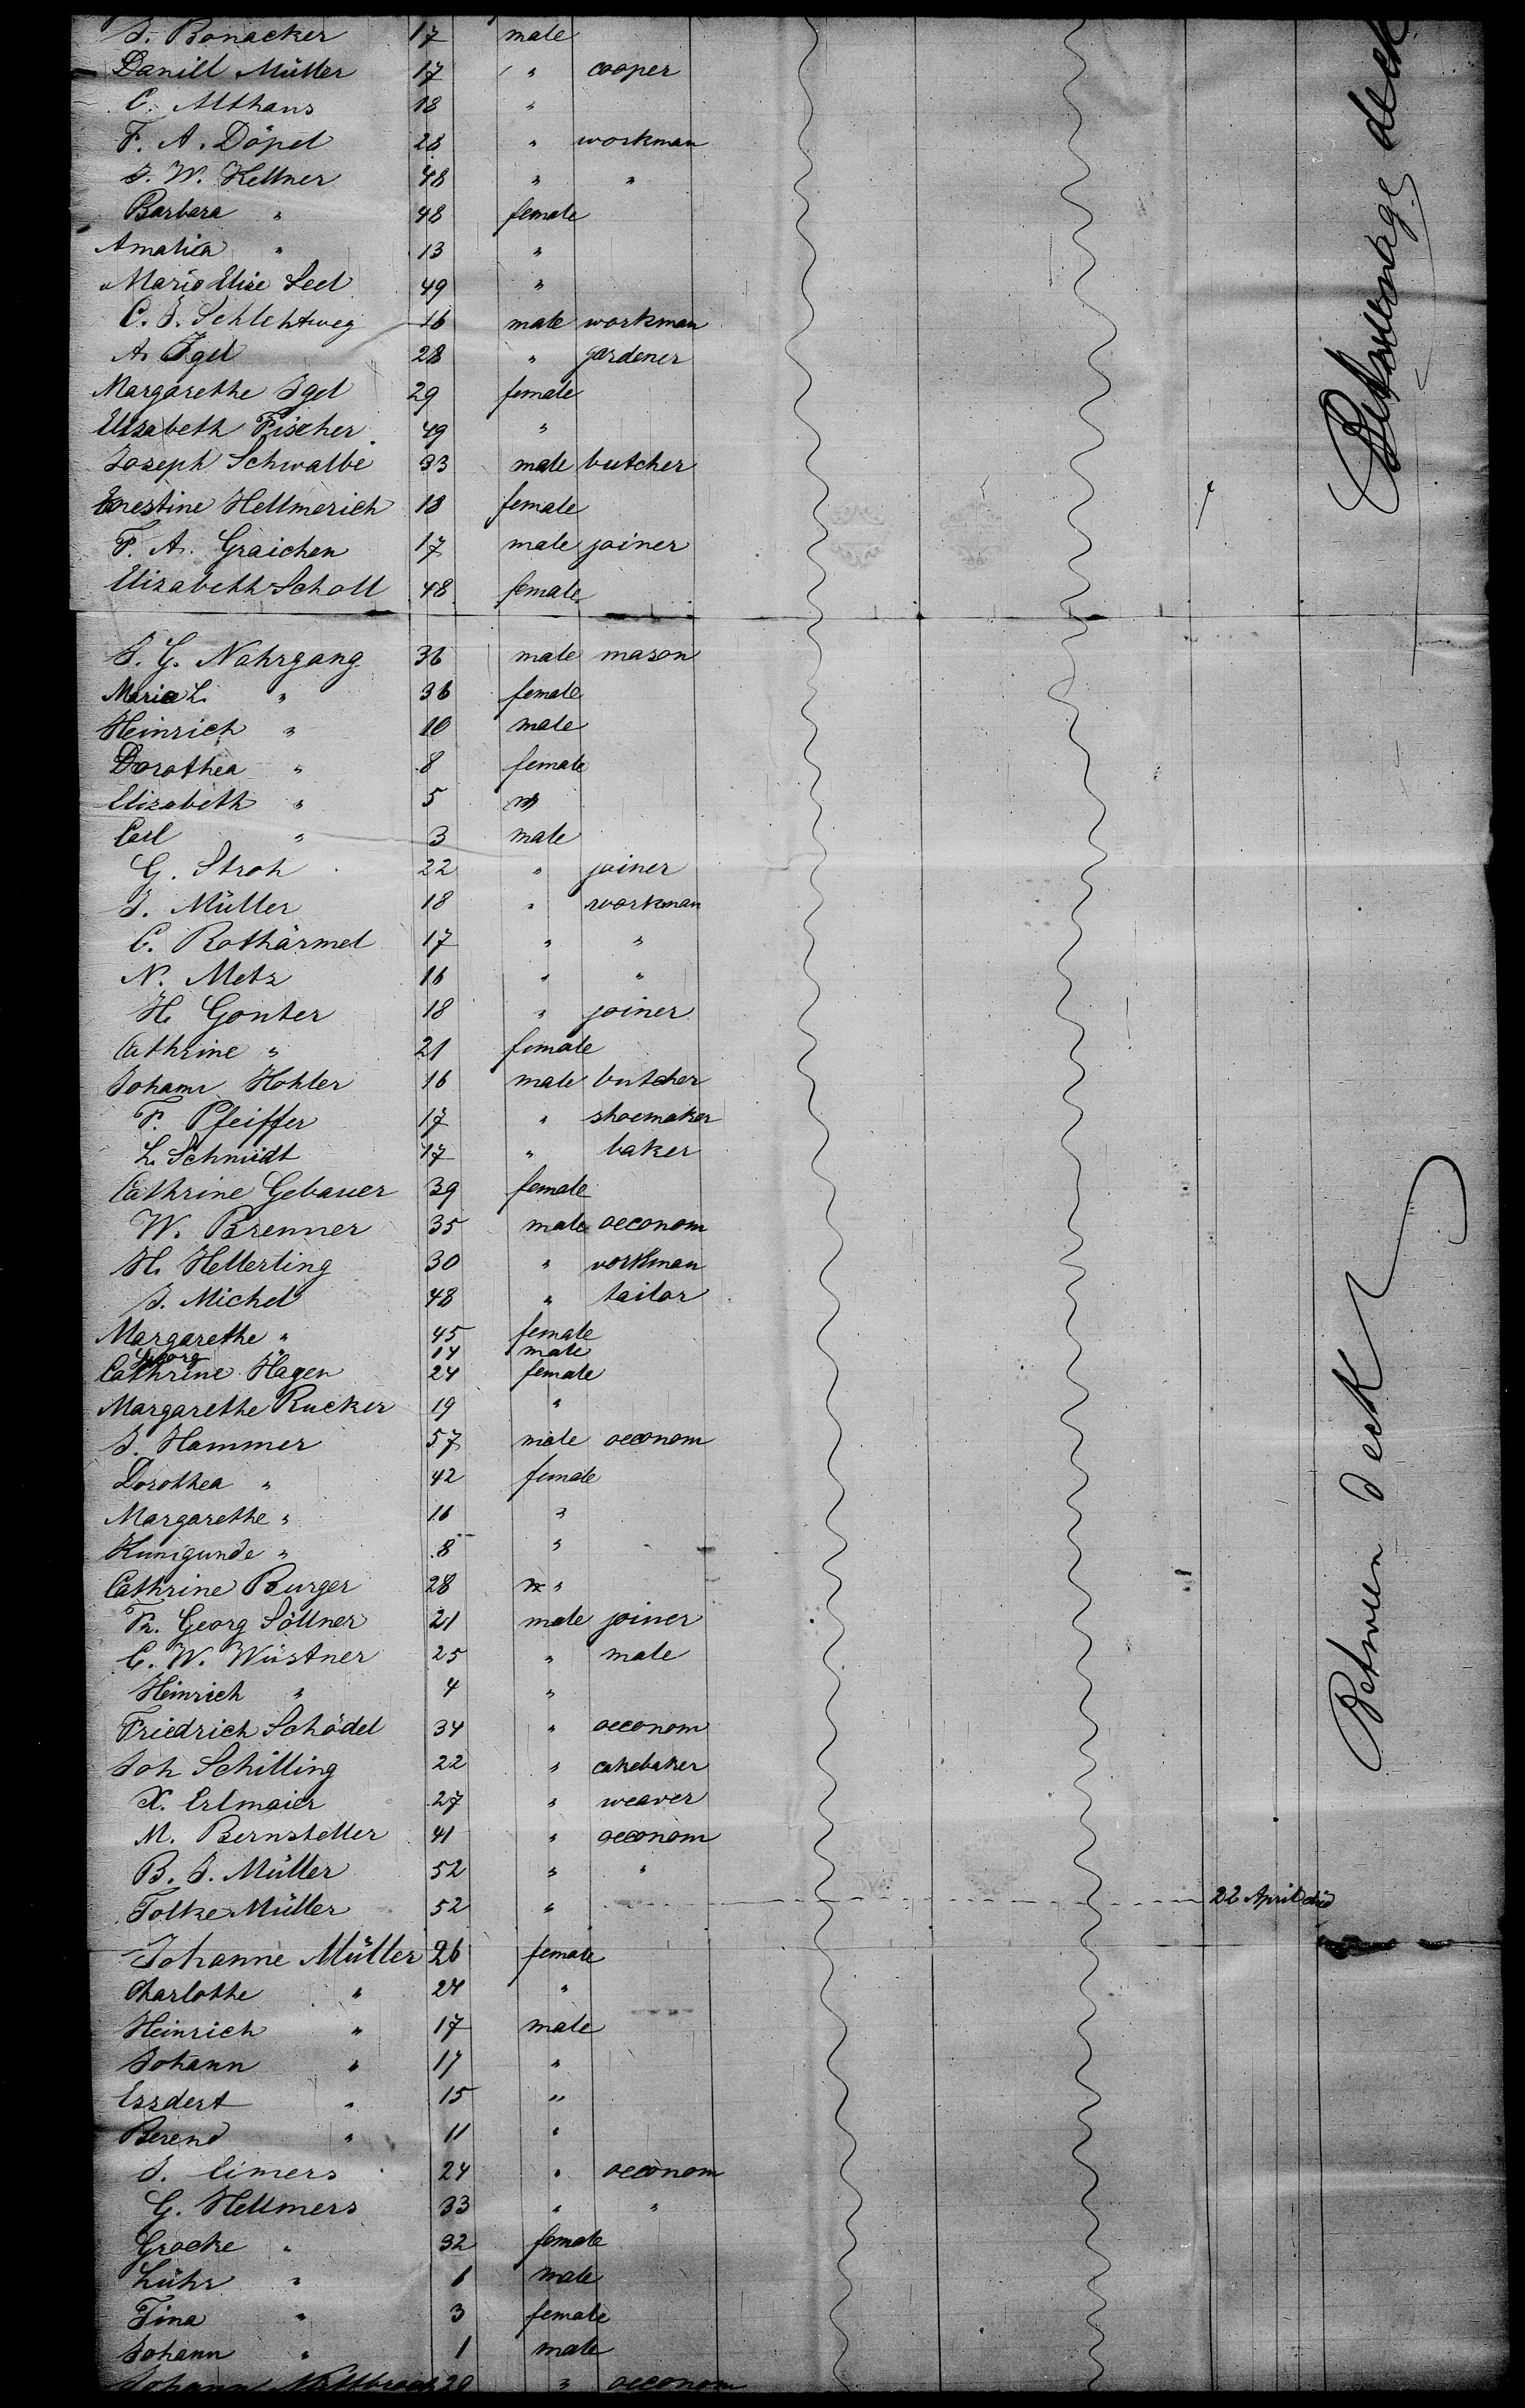 J. Bonacker 17 male
Daniel Müller 17 " cooper
C. Althans 18 "
F. A. Döpel 28 " workman
J. W. Kellner 48 " "
Barbara " 48 female
Amalia " 13 "
Marie Elise Seel 49 "
C. J. Schlehtweg 16 male workman
A. Igel 28 " gardener
Margarethe Igel 29 female
Elisabeth Fischer 49 "
Joseph Schwalbe 33 male butcher
Ernestine Hellmerich 18 female
F. A. Graichen 17 male joiner
Elizabeth Scholl 48 female
J. G. Nahrgang 36 male mason
Maria L. " 36 female
Heinrich " 10 male
Dorothea " 8 female
Elizabeth " 5 "
Carl " 3 male
G. Stroh 22 " joiner
J. Müller 18 " workman
C. Rothärmel 17 " "
N. Metz 16 " "
H. Gonter 18 " joiner
Cathrine " 21 female
Johann Hohler 16 male butcher
F. Pfeiffer 17 " shoemaker
L. Schmidt 17 " baker
Cathrine Gebauer 39 female
W. Brenner 35 male oeconom
H. Hellerling 30 " workman
J. Michel 48 " tailor
Margarethe " 45 female
Georg " 14 male
Cathrine Hagen 24 female
Margarethe Rucker 19 "
J. Hammer 57 male oeconom
Dorothea " 42 female
Margarethe " 16 "
Kunigunde " 8 "
Cathrine Burger 28 "
Fr. Georg Söllner 21 male joiner
C. W. Wüstner 25 " male
Heinrich " 4 "
Friedrich Schödel 34 " oeconom
Joh Schilling 22 " cakebaker
X. Erlmaier 27 " weaver
M. Bernsteller 41 " oeconom
B. J. Müller 52 " "
Tolke Müller 52 " 22 April died
Johanne Müller 26 female
Charlotte " 24 "
Heinrich " 17 male
Johann " 17 "
Essdert " 15 "
Berend " 11 "
J. Eimers 24 " oeconom
G. Hellmers 33 " "
Grocke " 32 female
Lühr " 6 male
Tina " 3 female
Johann " 1 male
Johann 20 " oeconom
deck
Between deck